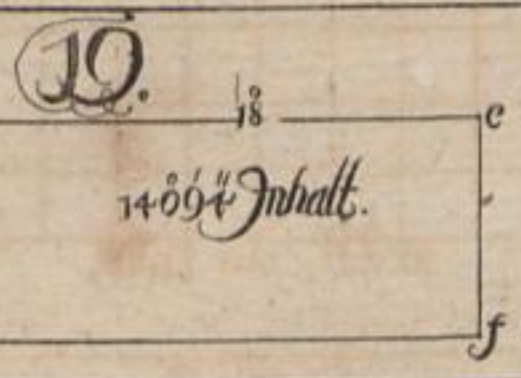 19.
18° c
140°9'4" Inhalt.
f